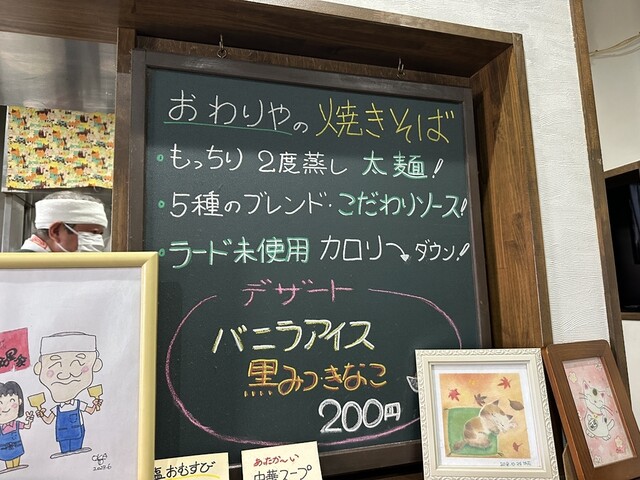 おわりやの焼きそば
・もっちり 2度蒸し 太麺!
・5種のブレンド・こだわりソース!
・ラード未使用 カロリーダウン!
デザート
バニラアイス
黒みつきなこ
200円
塩おむすび
あったか〜い
中華スープ